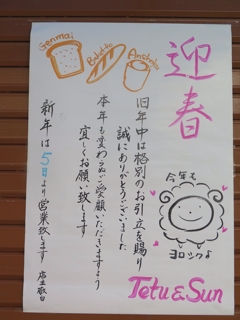 Genmai
Bataato
迎春
旧年中は格別のお引立を賜り
誠にありがとうございました
本年も変わらぬご愛顧いただきますよう
宜しくお願い致します
新年は5日より営業致します 店主敬白
今年も
ヨロシクよ
Tetu & Sun